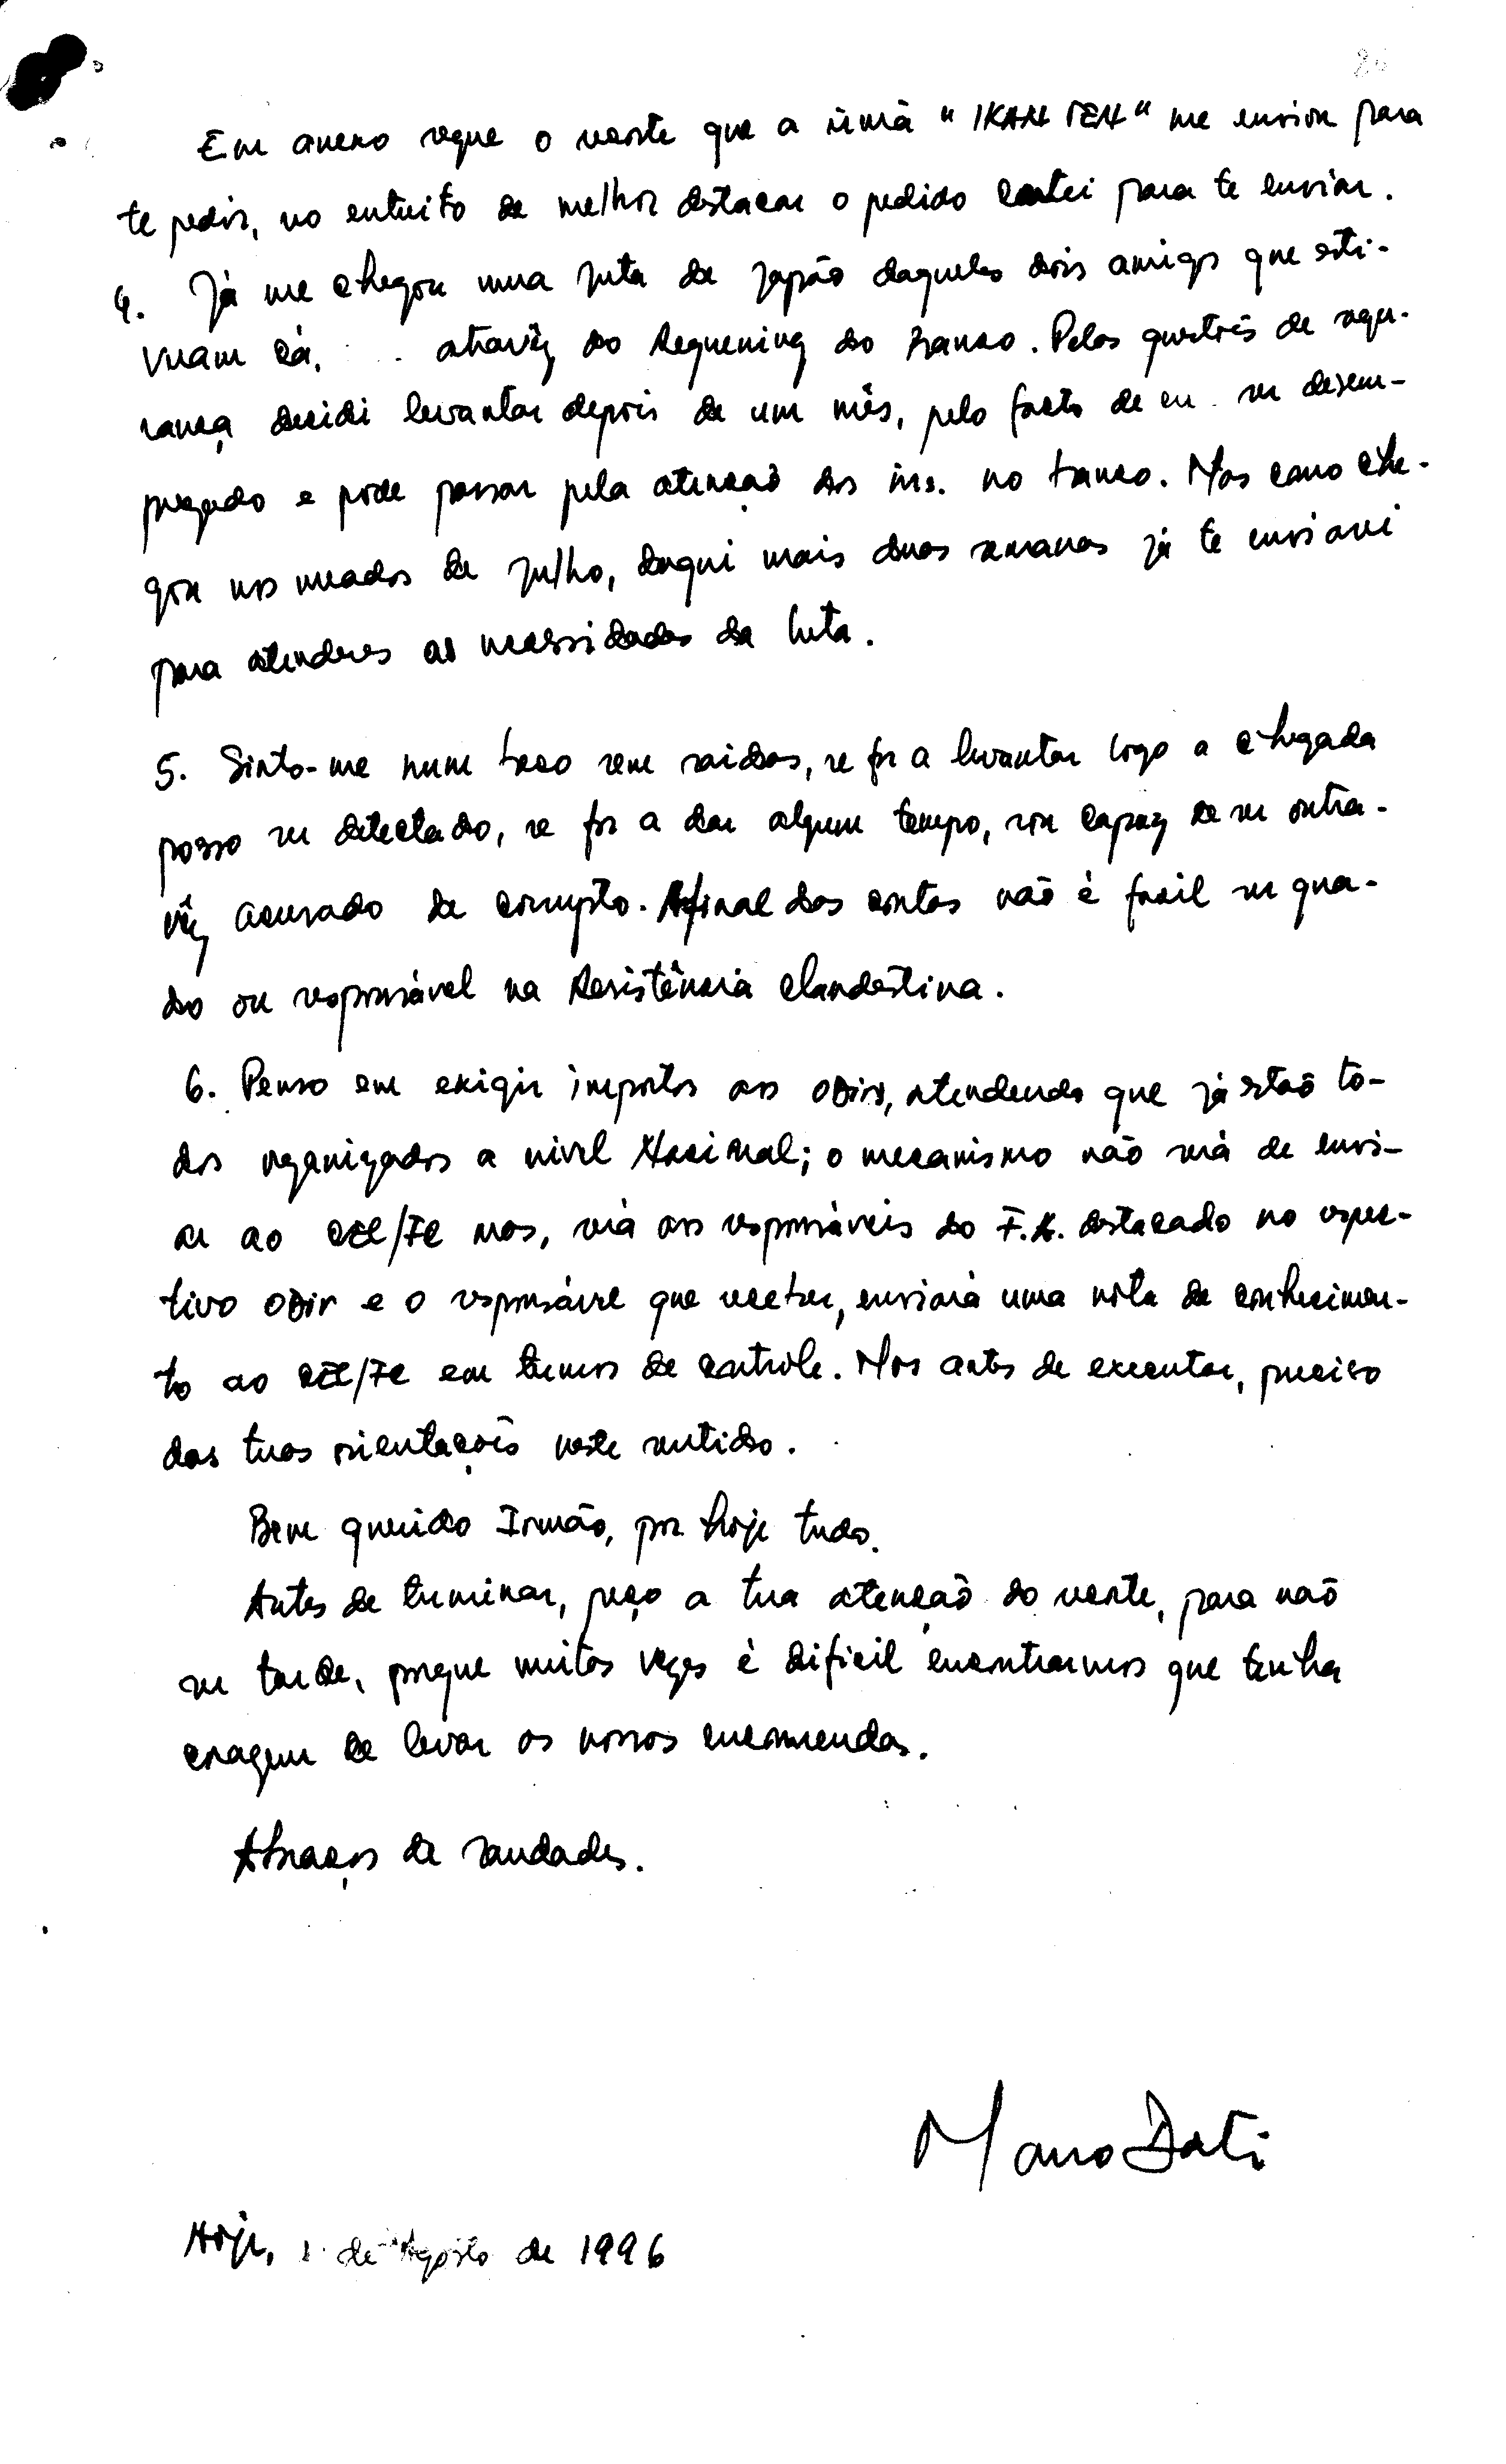 Em anexo segue o recorte que a irmã "IKAN TEN" me enviou para
te pedir, no entuito de melhor destacar o pedido cortei para te enviar.
4. Já me chegou uma juta de Japão daqueles dois amigos que esti-
veram cá, através do Requening do Banco. Pelas questões de segu-
rança decidi levantar depois de um mês, pelo facto de eu ser desem-
pregado e pode passar pela atenção dos ins. no banco. Mas como che-
gou nos meados de Julho, daqui mais duas semanas já te enviarei
para atenderes as necessidades da luta.
5. Sinto-me num beco sem saidas, se for a levantar logo a chegada
posso ser detectado, se for a dar algum tempo, sou capaz de ser outra-
vêz acusado de corrupto. Afinal das contas não é facil ser qua-
dro ou responsável na Resistência Clandestina.
6. Penso em exigir impostos aos OBirs, atendendo que já estaõ to-
dos organizados a nivel Nacional; o mecanismo não será de envi-
ar ao CEL/FC mas, virá aos responsáveis do F.A. destacado no respec-
tivo OBir e o responsável que receber, enviará uma nota de conhecimen-
to ao CEL/FC em termos de controle. Mas antes de executar, preciso
das tuas orientações neste sentido.
Bem querido Irmão, por hoje tudo.
Antes de terminar, peço a tua atençaõ do recorte, para naõ
ser tarde, porque muitas vezes é dificil encontrarmos que tenha
coragem de levar as nossas encomendas.
Abraços de saudades.
Mano Dati
Hoje, 1 de Agosto de 1996